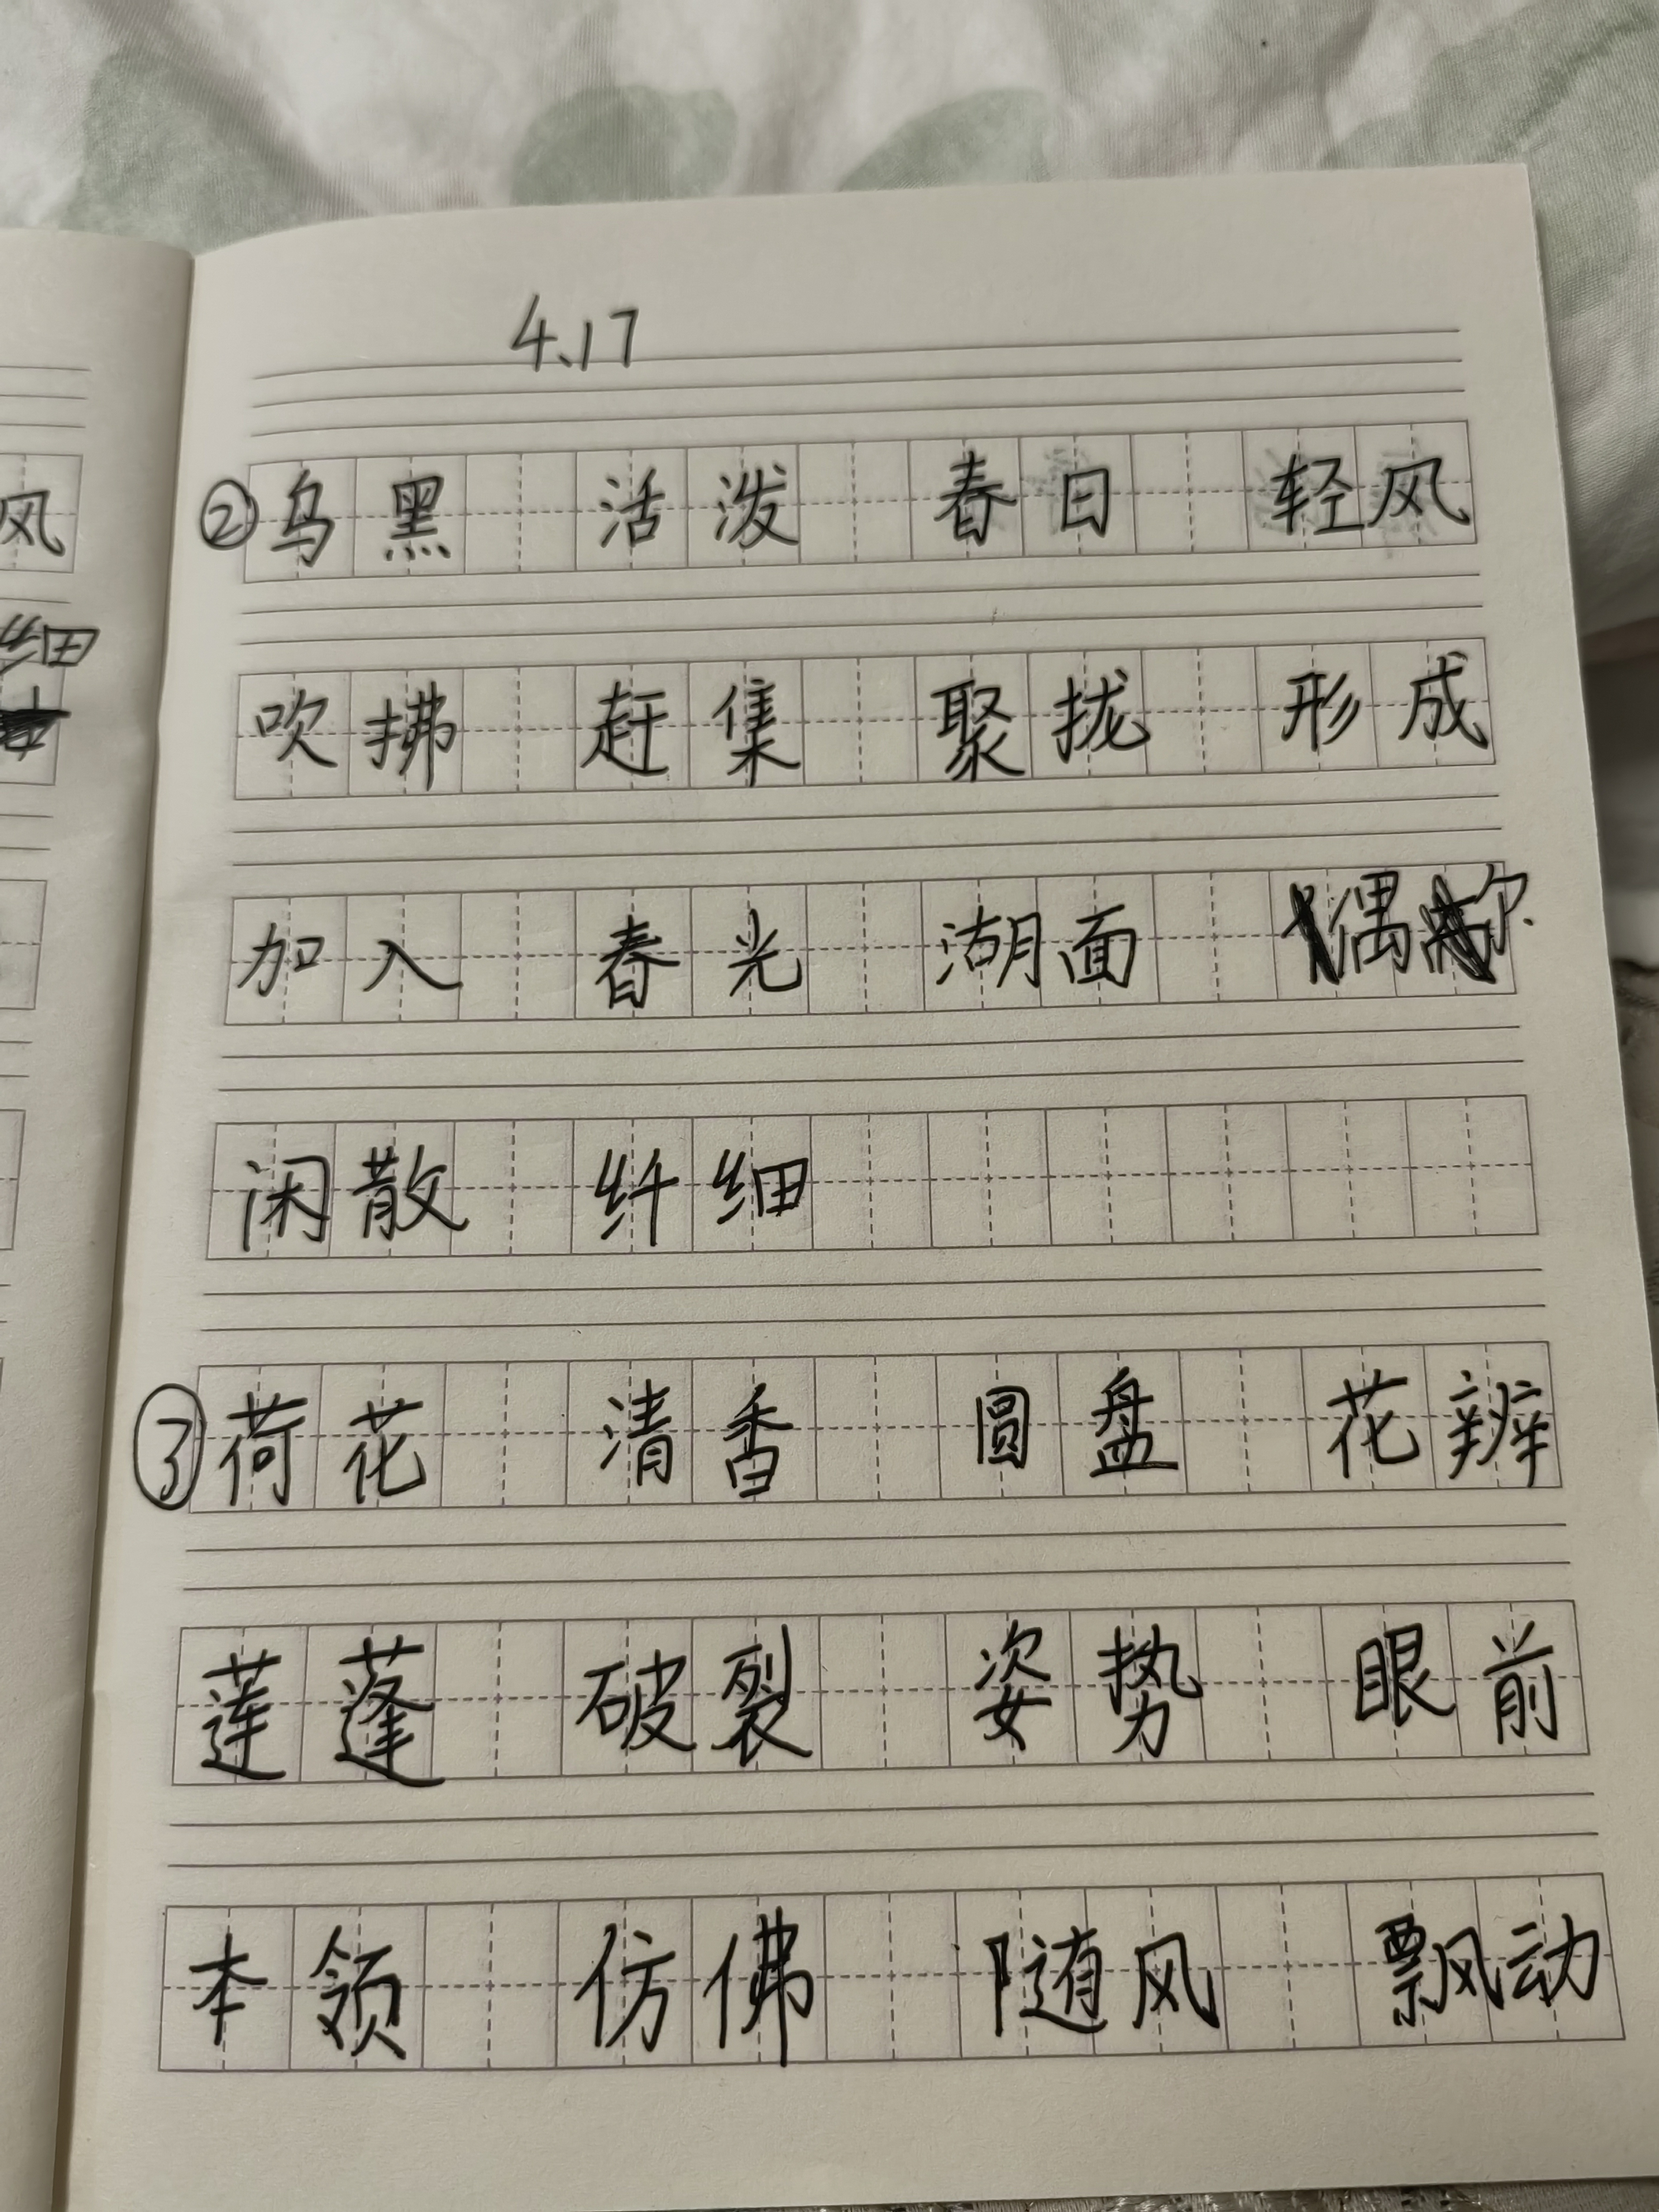 4.17
②乌黑 活泼 春日 轻风
吹拂 赶集 聚拢 形成
加入 春光 湖面 偶尔
闲散 纤细
③荷花 清香 圆盘 花辨
莲蓬 破裂 姿势 眼前
本领 仿佛 随风 飘动
风
细